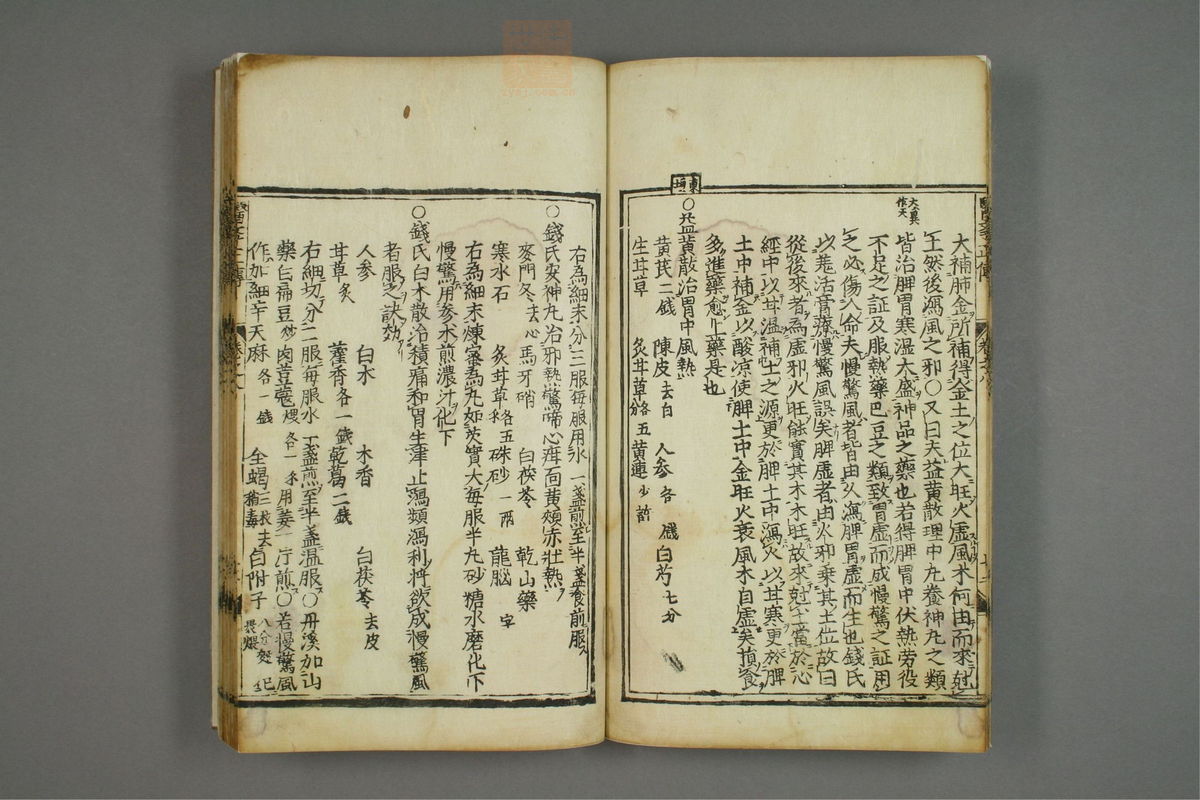 大補肺金所補得金土之位大旺火虛風木何由而來尅
土然後瀉風之邪○又曰夫益黃散理中丸養神丸之類
皆治脾胃寒湿大盛神品之藥也若得脾胃中伏熱労役
不足之証及服熱藥巴豆之類致胃虛而成慢驚之証用
之必傷人命夫慢驚風者皆由久瀉脾胃虛而生也錢氏
以羗活膏療慢驚風誤矣脾虛者由火邪乗其土位故曰
從後來者為虛邪火旺能實其木木旺故來尅土當於心
經中以甘温補土之源更於脾土中瀉火以甘寒更於脾
土中補金以酸凉使脾土中金旺火衰風木自虛矣損食
多進藥愈上藥是也
大異
作天
東垣
○益黃散治胃中風熱
黃芪二錢 陳皮去白 人參各 錢白芍七分
生甘草 炙甘草各五分黃連少許
右為細末分三服每服用水一盞煎至半盞食前服
○錢氏安神丸治邪熱驚啼心疳面黃頰赤壯熱
麥門冬去心馬牙硝 白茯苓 乾山藥
寒水石 炙甘草各五朱砂一兩 龍脳 字
右為細末煉蜜為丸如芡實大每服半丸砂糖水磨化下
慢驚用參朮煎濃汁化下
○錢氏白朮散治積痛和胃生津止瀉頻瀉利將欲成慢驚風
者服之訣効
人參 白朮 木香 白茯苓去皮
甘草炙 藿香各一錢乾葛二錢
右細切分二服每服水一盞煎至半盞温服○丹溪加山
藥白扁豆炒肉荳蔲煨各一錢用姜一片煎○若慢驚風
作加細辛天麻各一錢 全蝎三枚去毒白附子八分